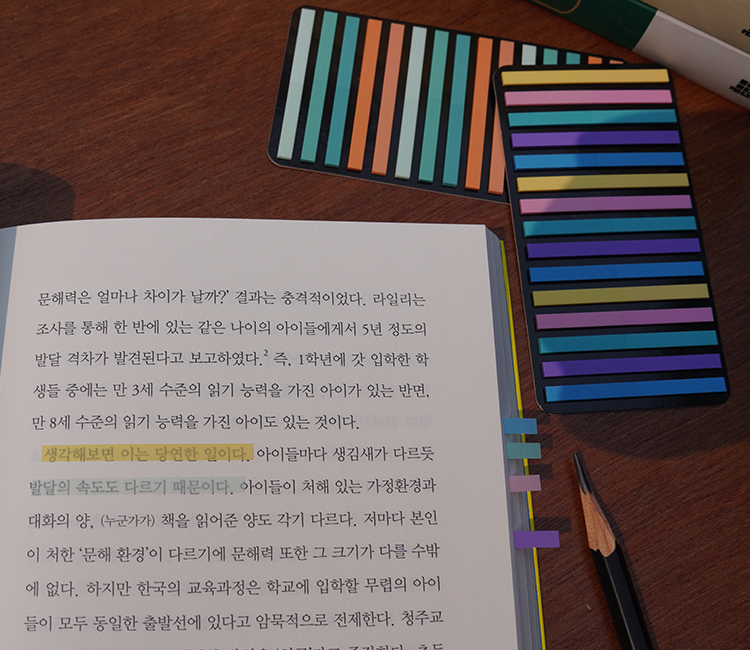 문해력은 얼마나 차이가 날까?' 결과는 충격적이었다. 라일리는
조사를 통해 한 반에 있는 같은 나이의 아이들에게서 5년 정도의
발달 격차가 발견된다고 보고하였다.² 즉, 1학년에 갓 입학한 학
생들 중에는 만 3세 수준의 읽기 능력을 가진 아이가 있는 반면,
만 8세 수준의 읽기 능력을 가진 아이도 있는 것이다.
생각해보면 이는 당연한 일이다. 아이들마다 생김새가 다르듯
발달의 속도도 다르기 때문이다. 아이들이 처해 있는 가정환경과
대화의 양, (누군가가) 책을 읽어준 양도 각기 다르다. 저마다 본인
이 처한 '문해 환경'이 다르기에 문해력 또한 그 크기가 다를 수밖
에 없다. 하지만 한국의 교육과정은 학교에 입학할 무렵의 아이
들이 모두 동일한 출발선에 있다고 암묵적으로 전제한다. 청주교